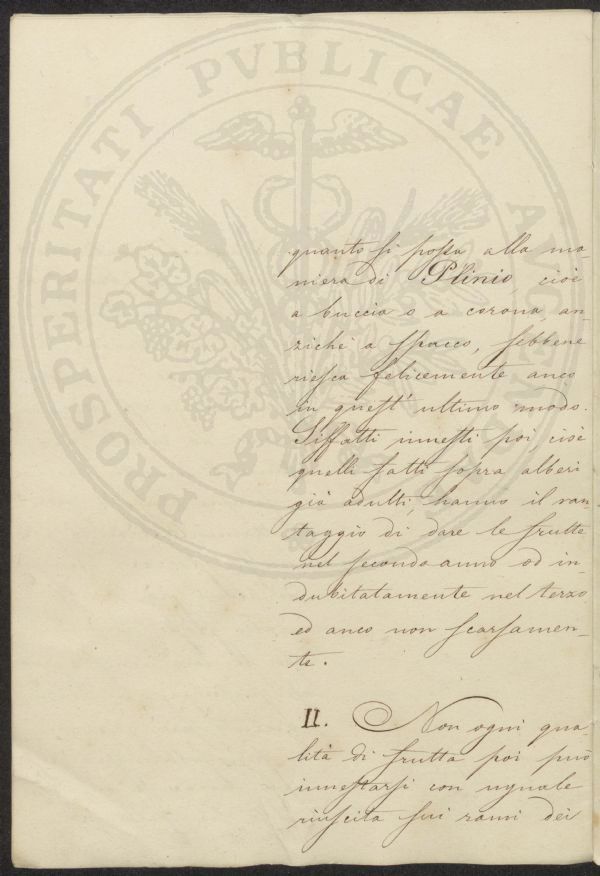 PROSPERITATI PVBLICAE
quanto si possa alla ma-
niera di Plinio, cioè
a buccia o a corona, an-
zichè a spacco, sebbene
riesca felicemente anco
in quest' ultimo modo.
Siffatti innesti poi, cioè
quelli fatti sopra alberi
già adulti, hanno il van-
taggio di dare le frutte
nel secondo anno od in-
dubitatamente nel terzo
ed anco non scarsamen-
te.
II. Non ogni qua-
lità di frutta poi può
innestarsi con uguale
riuscita sui rami dei